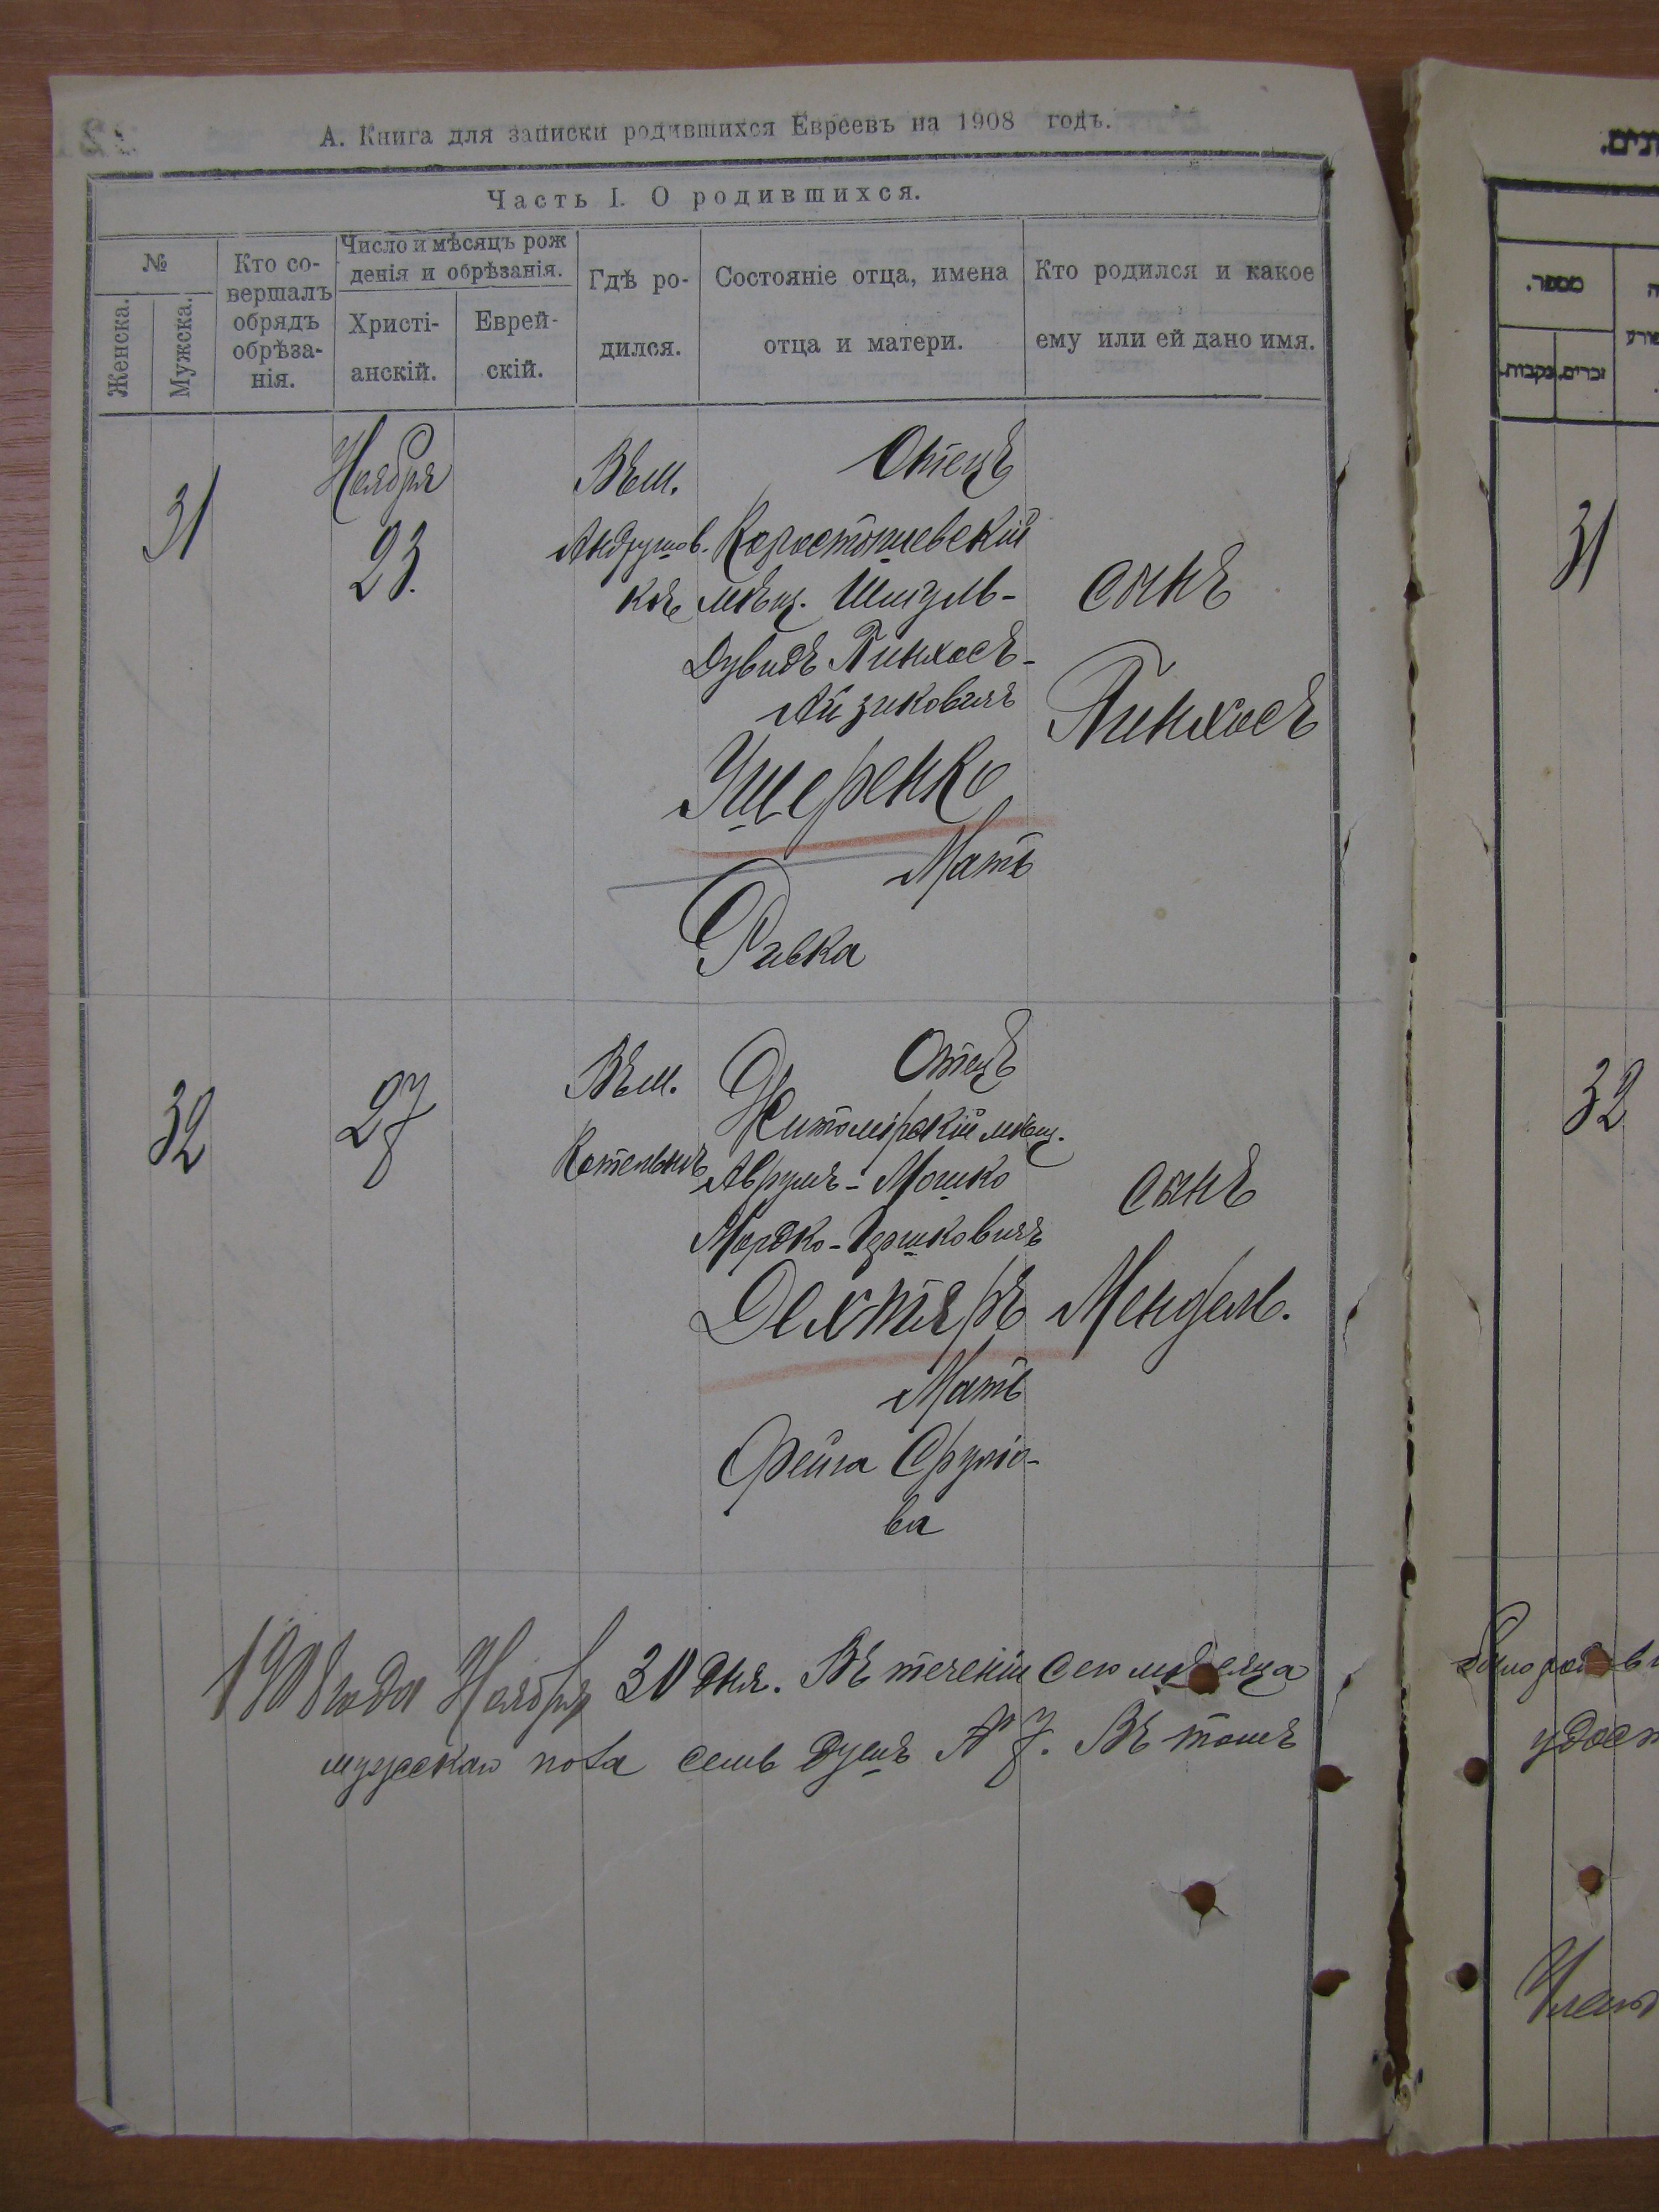 А. Книга для записки родившихся Евреевъ на 1908 годъ.
Часть I. О родившихся.
№
Женска.
Мужска.
Кто со-
вершалъ
обрядъ
обрѣза-
нія.
Число и мѣсяцъ рож
денія и обрѣзанія.
Христі-
анскій.
Еврей-
скій.
Гдѣ ро-
дился.
Состояніе отца, имена
отца и матери.
Кто родился и какое
ему или ей дано имя.
31
Ноября
23.
Въ м.
Андрушов.
кѣ
Отецъ
Коростышевскій
мѣщ. Шмуль-
Дувидъ Пинхосъ-
Айзиковичъ
Ушеренко
Мать
Ривка
сынъ
Пинхосъ
32
27
Въ м.
Котельнѣ
Отецъ
Житомірскій мѣщ.
Аврумъ-Мошко
Мордко-Гершковичъ
Дехтяръ
Мать
Фейга Сруліо-
ва
сынъ
Мендель.
1908 года Ноября 30 дня. Въ теченіи сего мѣсяца
мужскаго пола семь душъ № 7. Въ томъ
מספר.
זכרים.
נקבות.
31
32